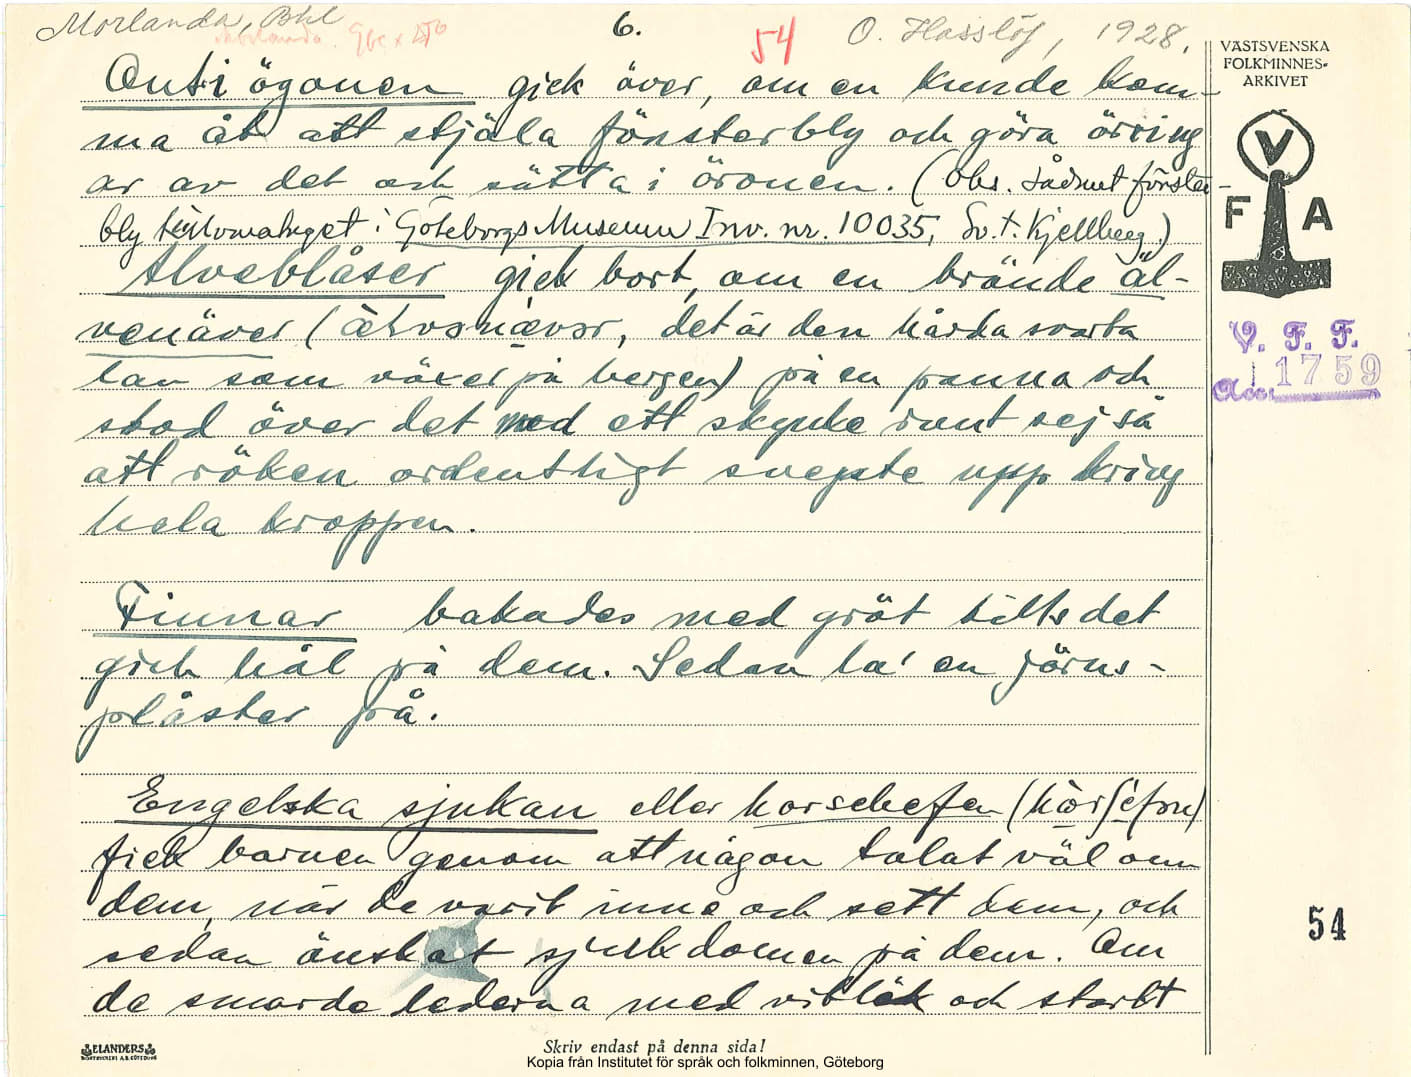 Morlanda, Bhl
6.
54
O. Hasslöf, 1928.
VÄSTSVENSKA
FOLKMINNES-
ARKIVET
V
F A
V. F. F.
Acc. 1759
Ont i ögonen gick över, om en kunde kom-
ma åt att stjäla fönsterbly och göra örring
ar av det och sätta i öronen. (Obs. sådant fönster-
bly i Göteborgs Museum Inv. nr. 10035, Sv. t. Kjellberg.)
Alveblåser gick bort, om en brände äl-
venäver ( det är den hårda svarta
lav som växer på bergen) på en panna och
stod över det med ett skynke runt sej så
att röken ordentligt svepte upp kring
hela kroppen.
Finnar bakades med gröt tills det
gick hål på dem. Sedan la' en järns-
plåster på.
Engelska sjukan eller horschefen
fick barnen genom att någon talat väl om
dem, när de varit inne och sett dem, och
sedan önskat sjukdomen på dem. Om
de smorde lederna med vitlök och starkt
54
ELANDERS
Skriv endast på denna sida!
Kopia från Institutet för språk och folkminnen, Göteborg